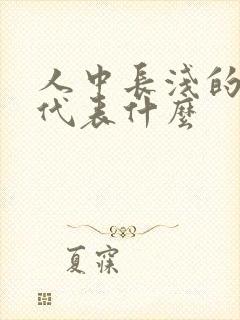 人中長淺的
代表什麼
夏寐